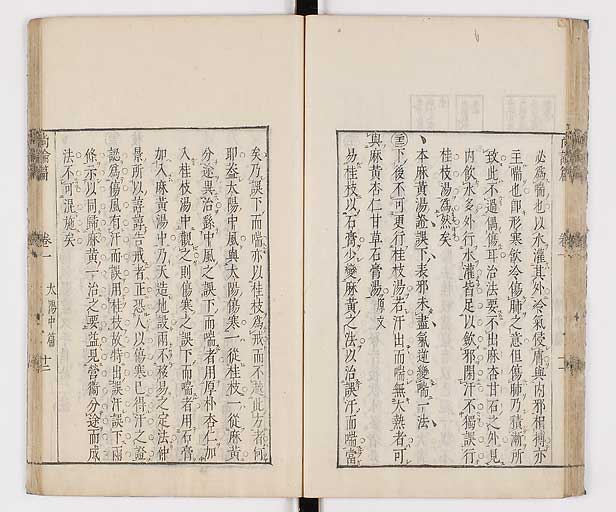 必為喘也以水灌其外冷氣侵膚與內邪相搏亦
主喘也卽形寒飲冷傷肺之意但傷肺乃積漸所
致此不過偶傷耳治法要不出麻杏甘石之外見
內飲水多外行水灌皆足以斂邪閉汗不獨誤行
桂枝湯為然矣
本麻黃湯證誤下表邪未盡氣逆變喘一法
下後不可更行桂枝湯若汗出而喘無大熱者可
與麻黃杏仁甘草石膏湯原文
易桂枝以石膏少變麻黃之法以治誤汗而喘當
矣乃誤下而喘亦以桂枝為戒而不越此方者何
耶葢太陽中風與太陽傷寒一從桂枝一從麻黃
分途異治餘中風之誤下而喘者用厚朴杏仁加
入桂枝湯中觀之則傷寒之誤下而喘者用石膏
加入麻黃湯中乃天造地設兩不移易之定法仲
景所以諄諄告戒者正恐人以傷寒已得汗之證
認為傷風有汗而誤用桂枝故特出誤汗誤下兩
條示以同歸麻黃一治之要益見營衞分途而成
法不可混施矣
尚論篇
卷一
太陽中篇
十二